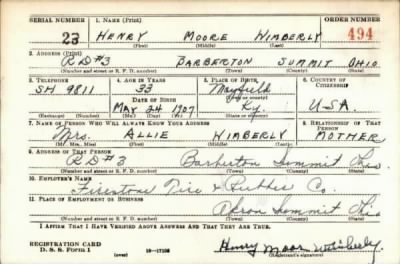 SERIAL NUMBER 1. NAME (Print) ORDER NUMBER
23 HENRY MOORE WIMBERLY 494
(First) (Middle) (Last)
2. ADDRESS (Print)
RD#3 BARBERTON SUMMIT OHIO
(Number and street or R. F. D. number) (Town) (County) (State)
3. TELEPHONE 4. AGE IN YEARS 5. PLACE OF BIRTH 6. COUNTRY OF CITIZENSHIP
SH 9811 33 Mayfield
DATE OF BIRTH (Town or county)
MAY 24 1907 Ky. USA.
(Exchange) (Number) (Mo.) (Day) (Yr.) (State or country)
7. NAME OF PERSON WHO WILL ALWAYS KNOW YOUR ADDRESS 8. RELATIONSHIP OF THAT PERSON
Mrs. ALLIE WIMBERLY MOTHER
(Mr., Mrs., Miss) (First) (Middle) (Last)
9. ADDRESS OF THAT PERSON
RD#3 Barberton Summit Ohio
(Number and street or R. F. D. number) (Town) (County) (State)
10. EMPLOYER'S NAME
Firestone Tire & Rubber Co.
11. PLACE OF EMPLOYMENT OR BUSINESS
Akron Summit Ohio
(Number and street or R. F. D. number) (Town) (County) (State)
I AFFIRM THAT I HAVE VERIFIED ABOVE ANSWERS AND THAT THEY ARE TRUE.
REGISTRATION CARD
D. S. S. FORM 1 (over) 16—17105 Henry Moore Wimberly
(Registrant's signature)